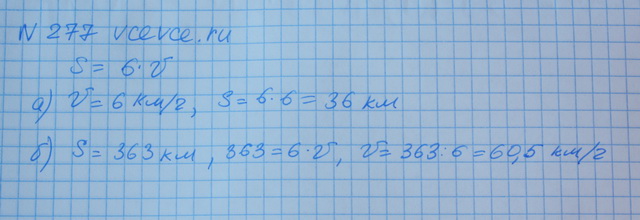 N 277 vcevce.ru
S = 6·v
а) v = 6 км/г, S = 6·6 = 36 км
б) S = 363 км, 363 = 6·v, v = 363:6 = 60,5 км/г